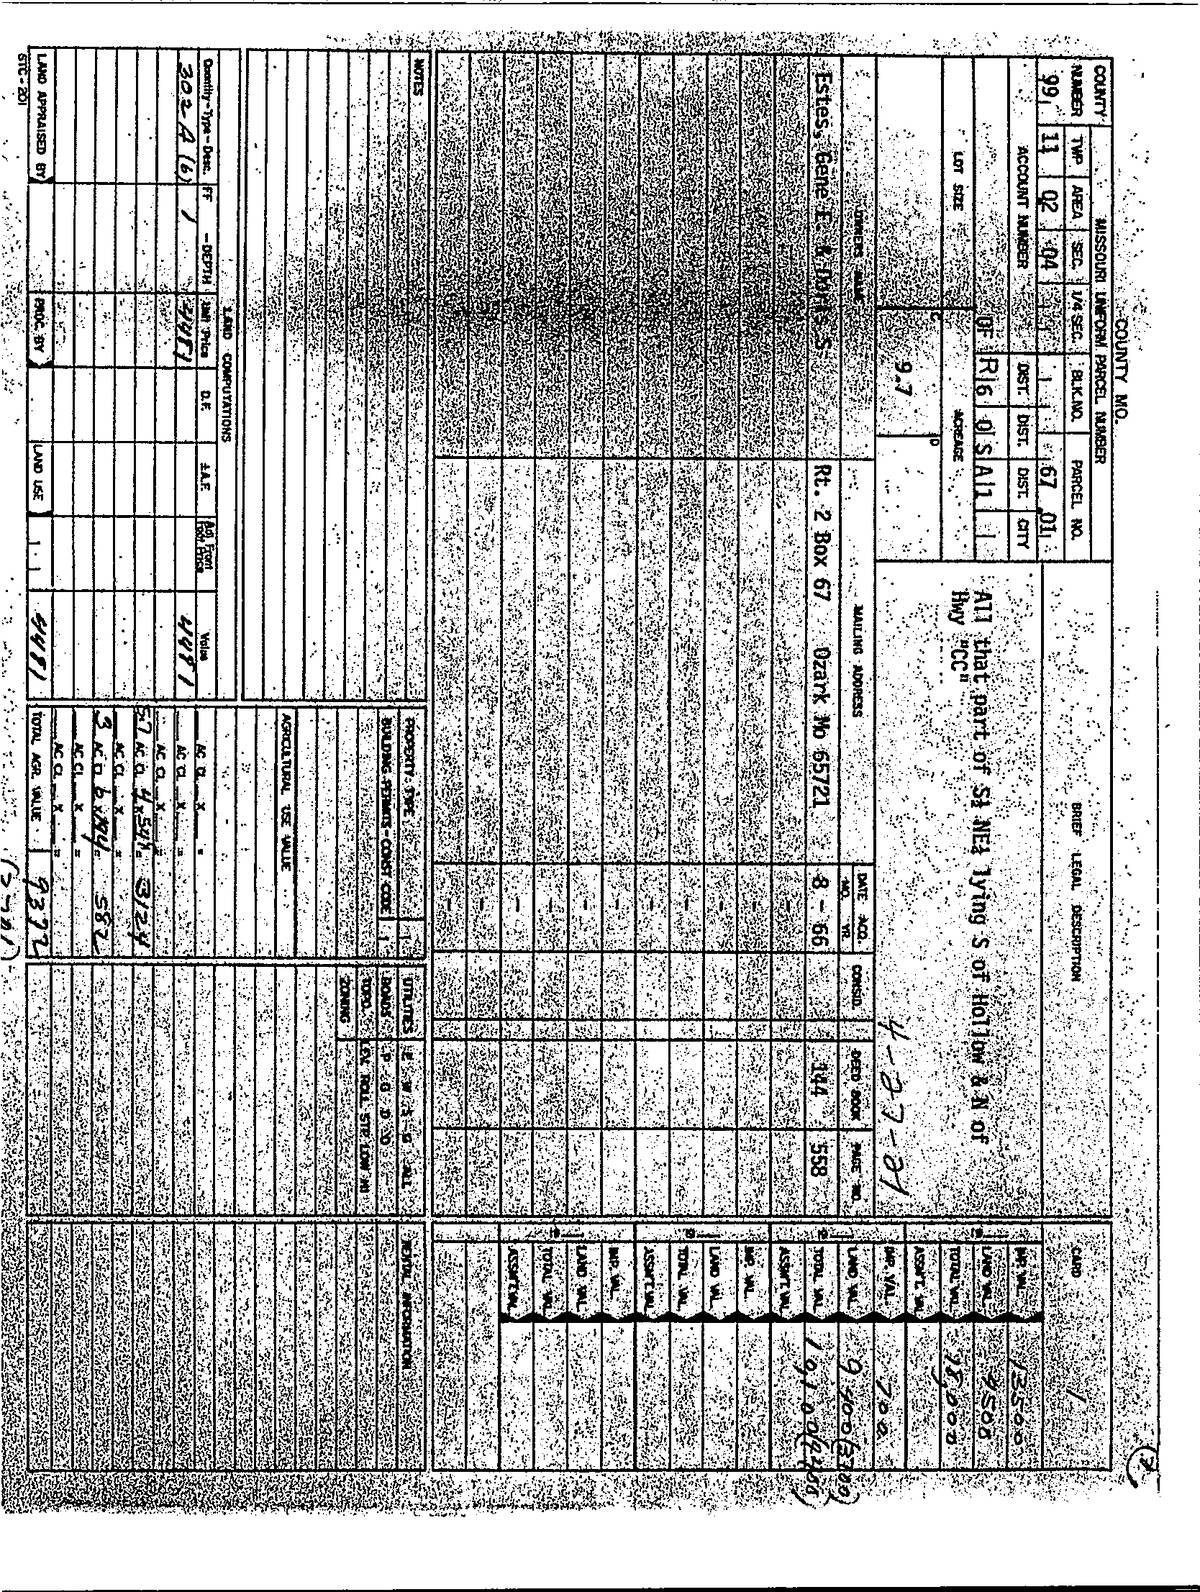 COUNTY MO.
COUNTY NUMBER
MISSOURI UNIFORM PARCEL NUMBER
TWP AREA SEC. 1/4 SEC. BLK.NO. PARCEL NO.
99 11 02 04 67 .01
ACCOUNT NUMBER DIST. DIST. DIST. CITY
OF R 6 0 S A 1
LOT SIZE ACREAGE
C D
9.7
BRIEF LEGAL DESCRIPTION
All that part of S½ NE¼ lying S of Hollow & N of
Hwy "CC"
4-27-27
CARD 1
IMP. VAL. 13500
LAND VAL. 4500
TOTAL VAL. 18,000
ASSM'T VAL.
OWNERS NAME MAILING ADDRESS DATE ACQ. MO. YR. CONSID. DEED BOOK PAGE NO.
Estes, Gene E. & Doris S Rt. 2 Box 67 Ozark Mo 65721 8 - 66 144 558
IMP. VAL. 700
LAND VAL. 9400 (3700)
TOTAL VAL. 10,100 (4400)
ASSM'T VAL.
IMP. VAL.
LAND VAL.
TOTAL VAL.
ASSM'T VAL.
IMP. VAL.
LAND VAL.
TOTAL VAL.
ASSM'T VAL.
NOTES:
PROPERTY TYPE
BUILDING PERMITS-CONST CODE
UTILITIES E W S G ALL
ROADS P G D O
TOPO. LEV. ROLL STP LOW HI
ZONING
RENTAL INFORMATION
AGRICULTURAL USE VALUE
LAND COMPUTATIONS
Quantity-Type-Desc. FF - DEPTH Unit Price D.F. ±A.F. Adj. Front Foot Price Value
302 A (6) 1 4481 4481
AC CL X =
AC CL X =
AC CL X =
5.7 AC CL 4 X 541 = 3124
AC CL X =
3 AC CL 6 X = 582
AC CL X =
AC CL X =
LAND APPRAISED BY PROC. BY LAND USE 4481
TOTAL AGR. VALUE 9372
STC-201
(3701)